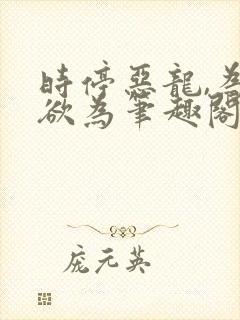 時停惡龍,為
欲為筆趣閣
庞元英